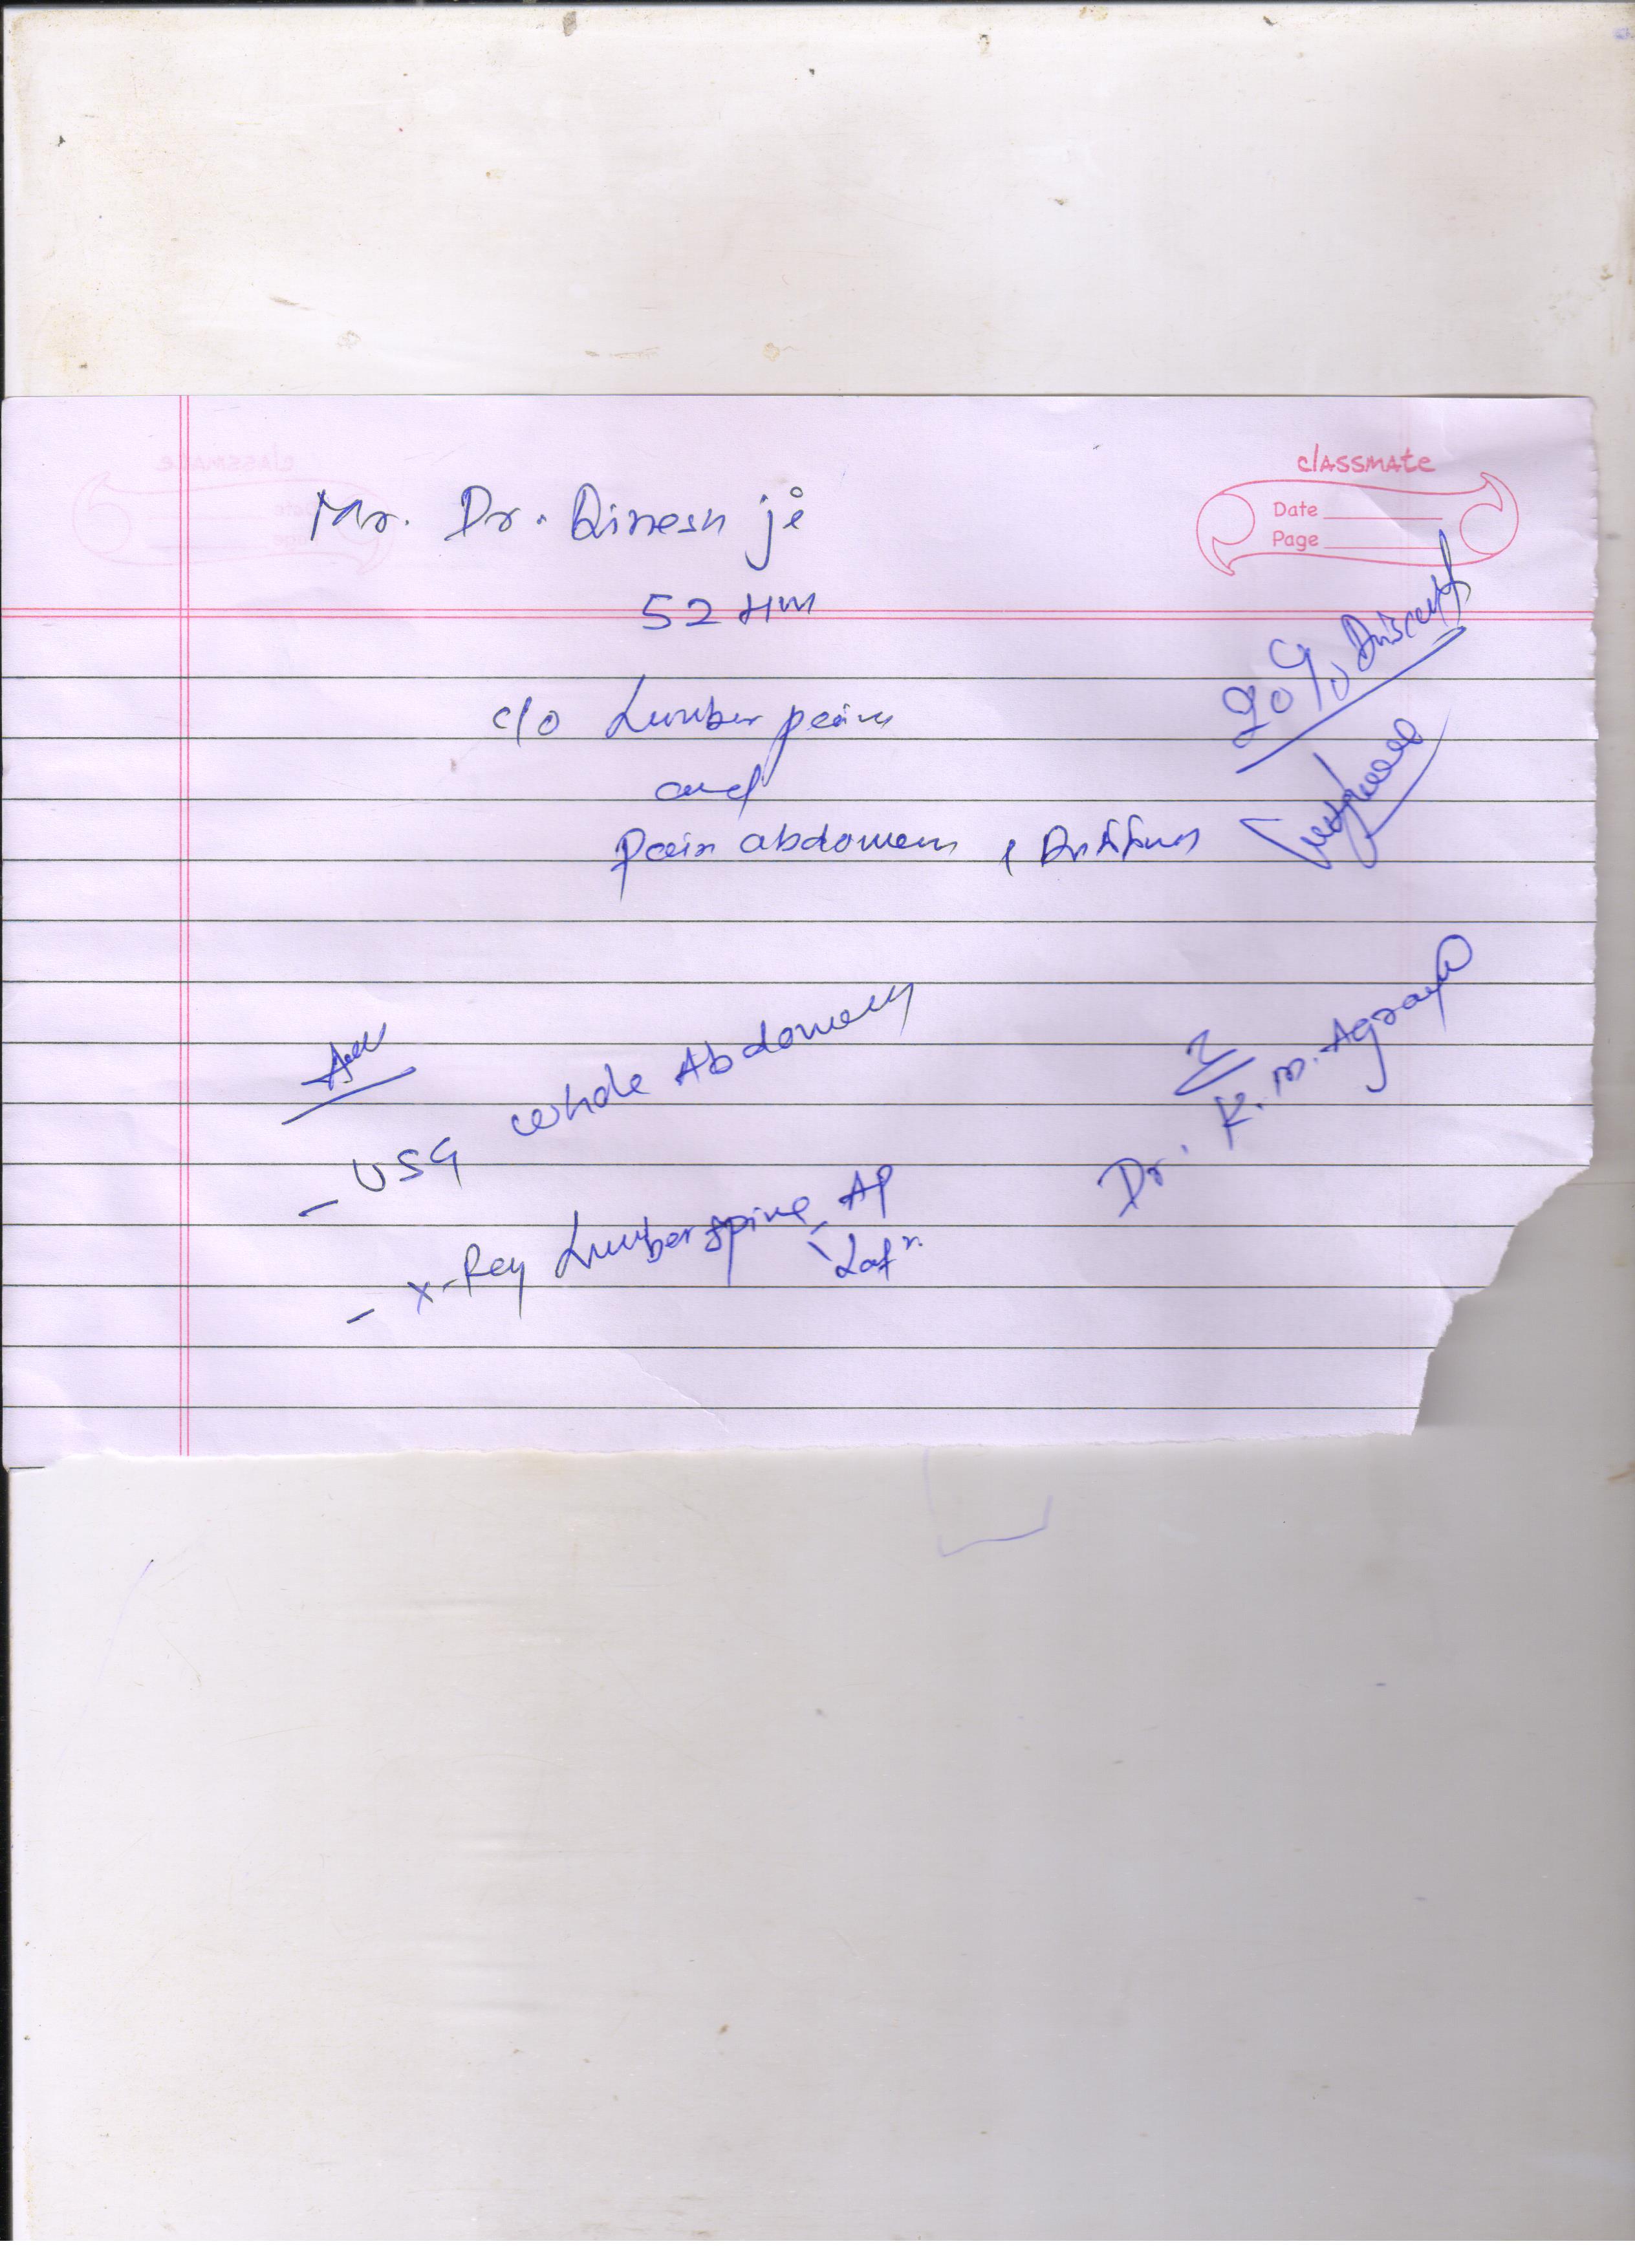 classmate
Date
Page
Mr. Dr. Dinesh ji
52
20%
c/o Lumber pain
and
Pain abdomen
Adv
- USG Whole Abdomen
- X-Ray Lumber spine AP
Lat
Dr. K. M. Agrawal